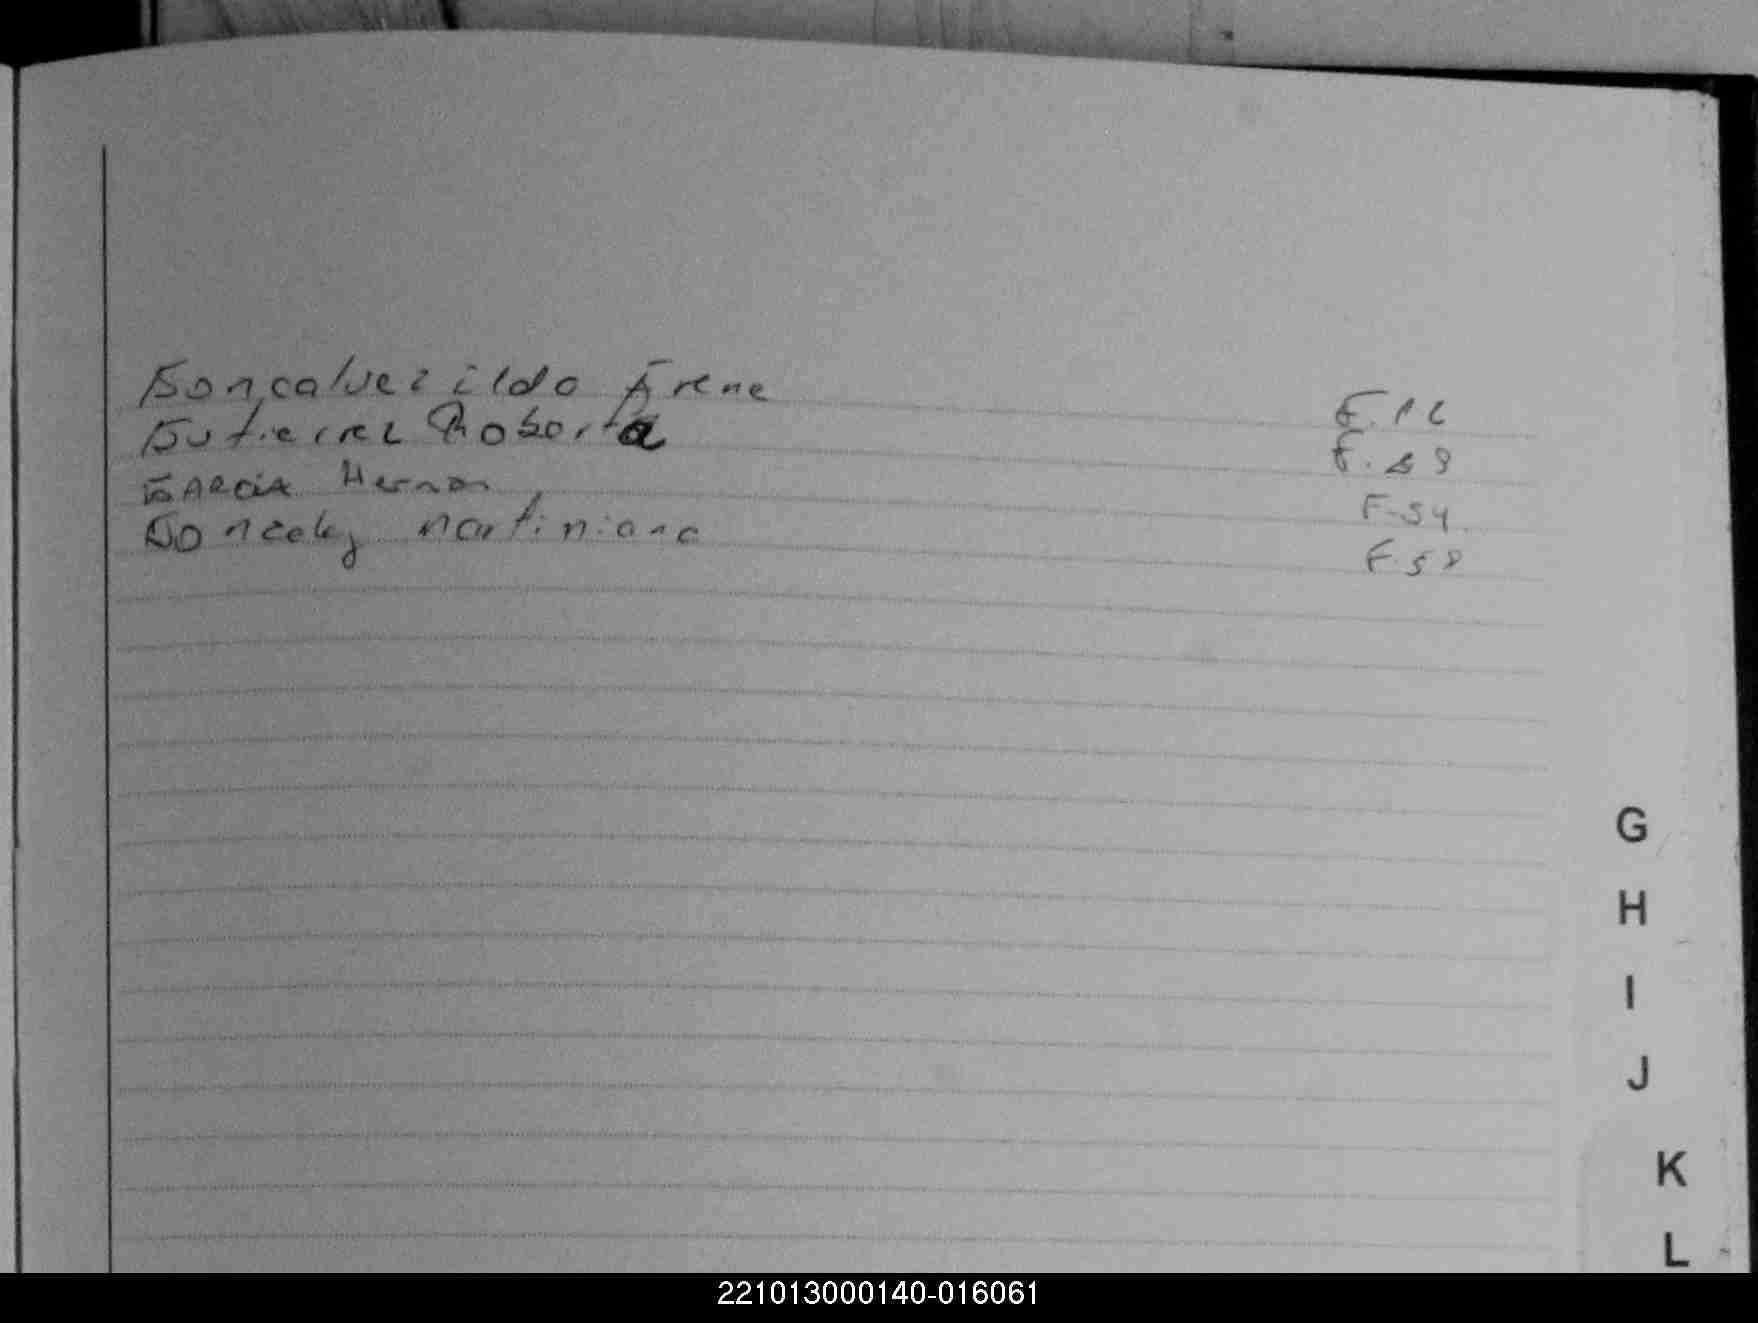 Gonçalvez ildo Irene F.16
Gutierrez Roberta F.
GARCIA Hernan F-54.
Gonzalez martiniano F.58
G
H
I
J
K
L
221013000140-016061